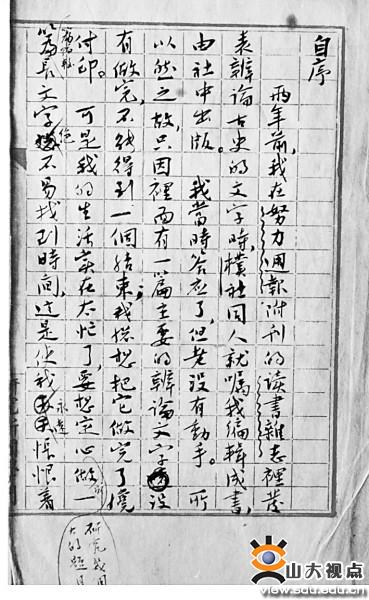 自序
兩年前,我在努力週報附刊的读書雜志裡發
表辨論古史的文字時,樸社同人就囑我編輯成書,
由社中出版。 我當時答應了,但老沒有動手。 所
以然之故,只因裡面有一篇主要的辨論文字沒
有做完,不能得到一個結束;我總想把它做完了
付印。 可是我的生活實在太忙了,要想定心做一
篇長文字絕不易找到時間,這是使我永遠悵恨着
研究範圍
大的題目
山大视点
www.view.sdu.edu.cn